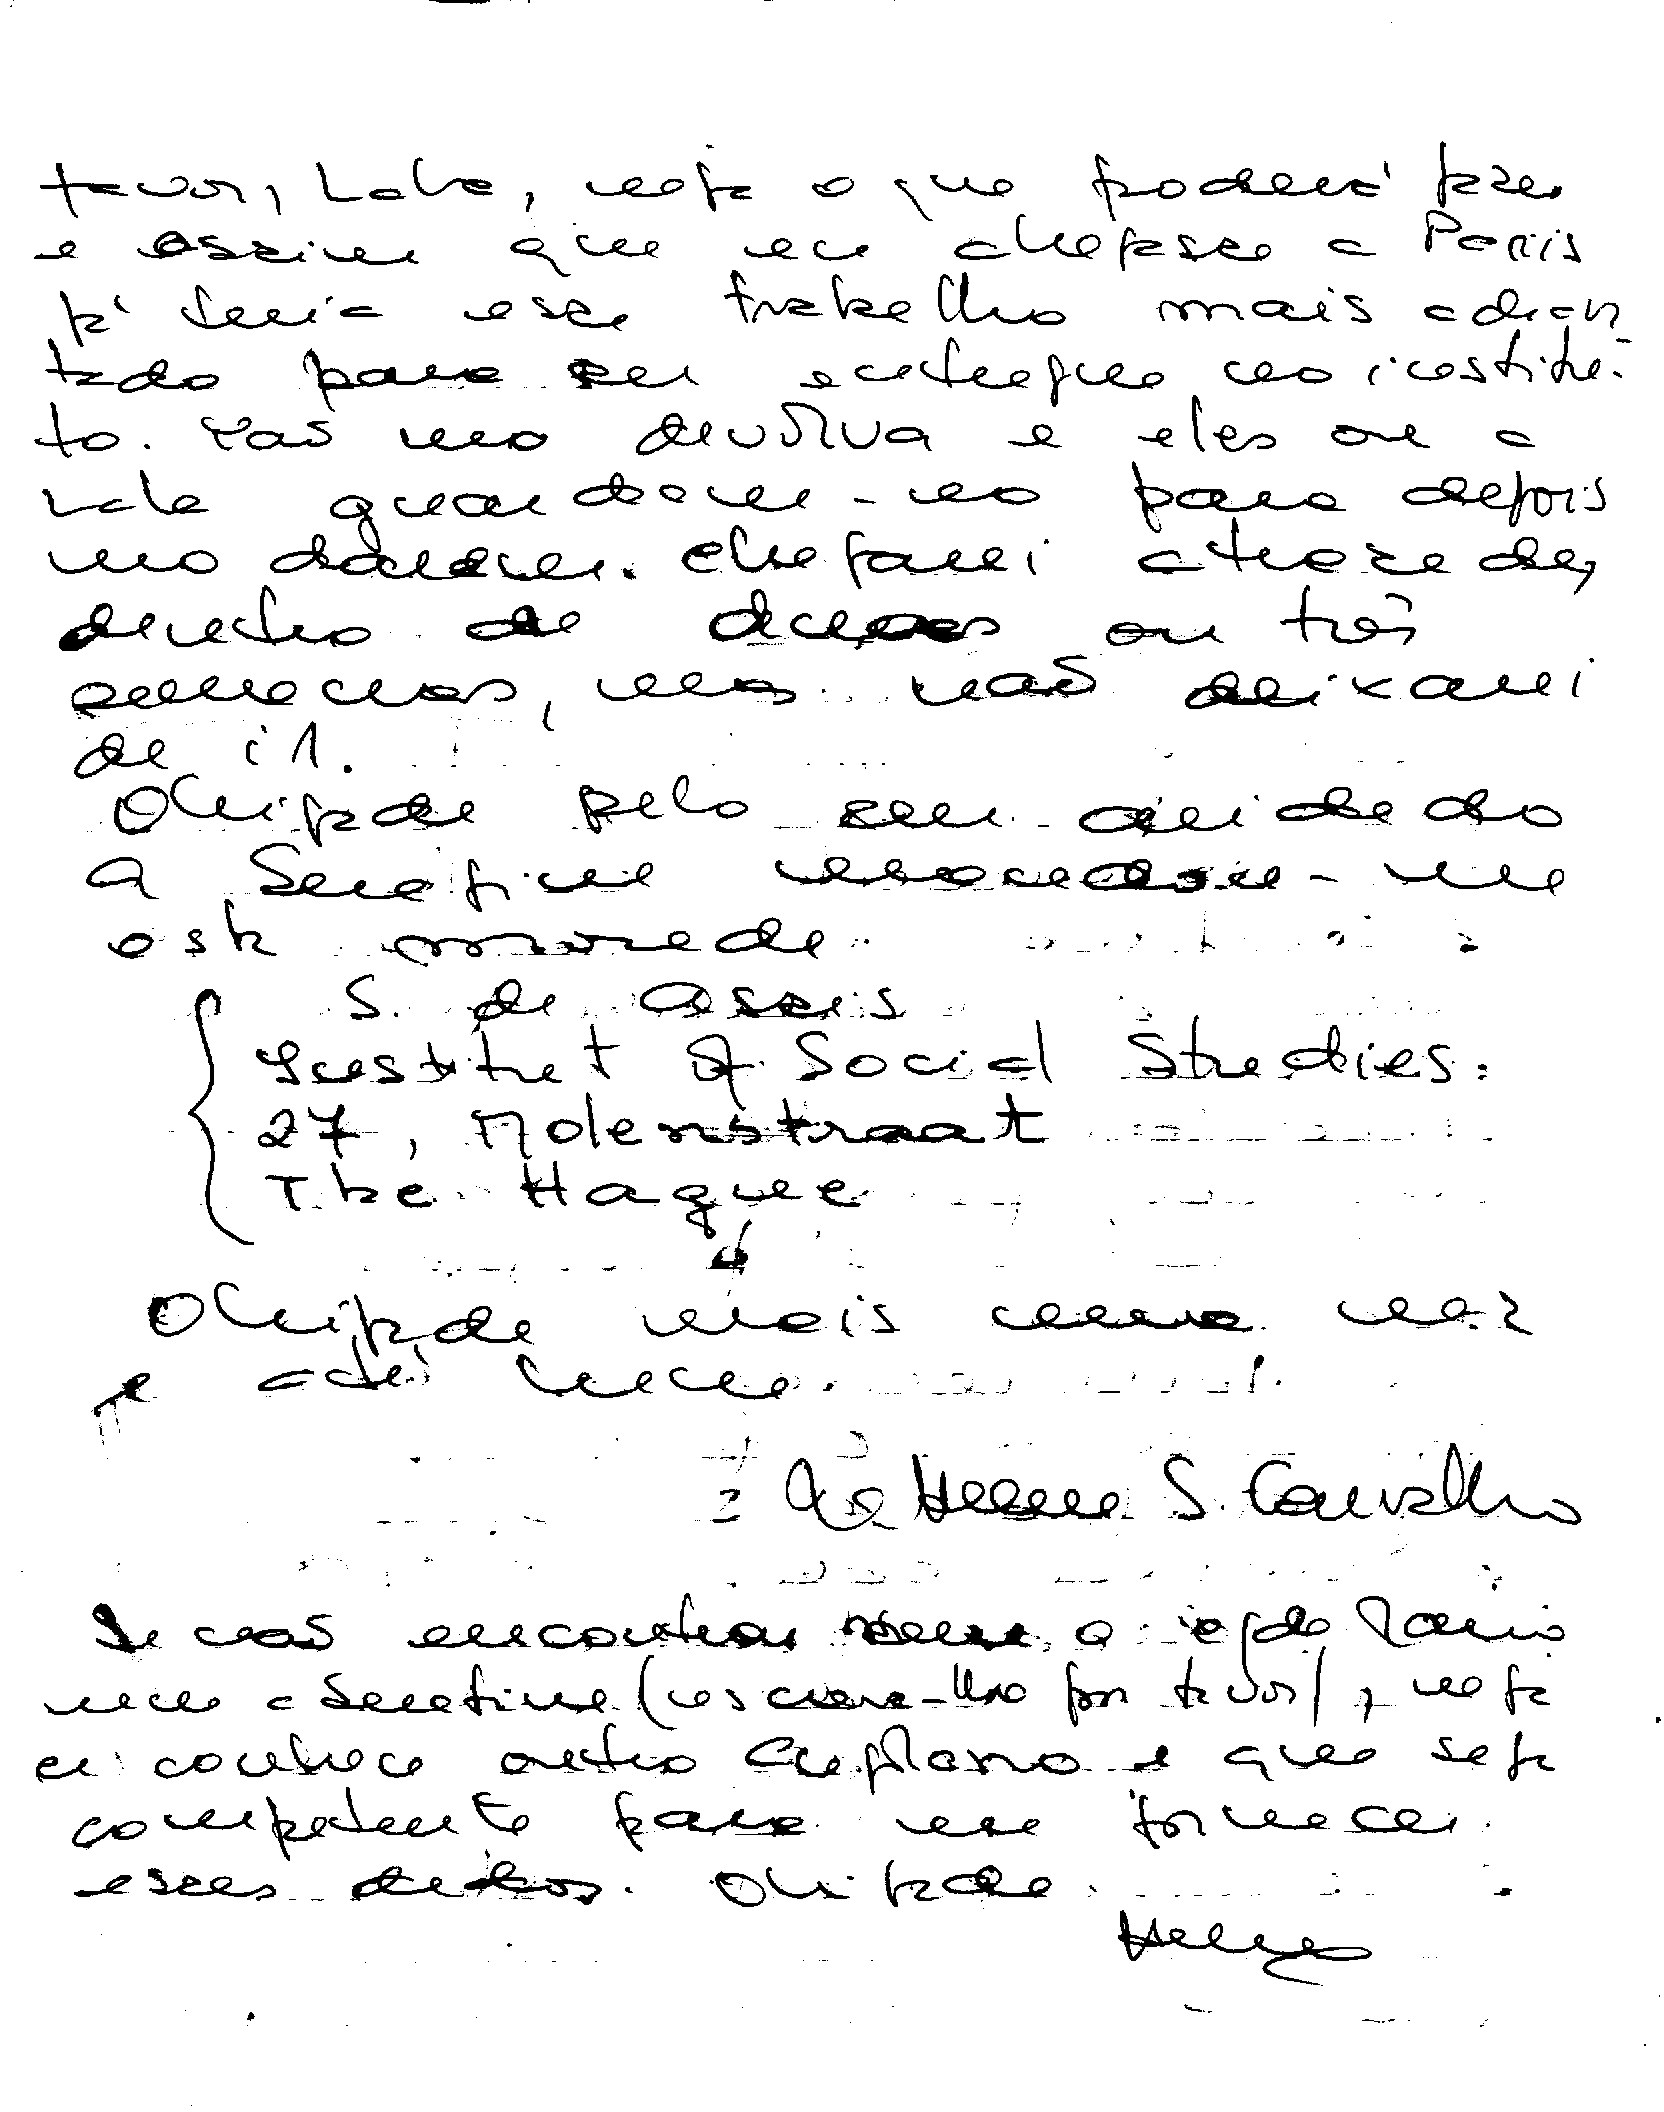 favor, Lala, veja o que poderá fazer
e assim que eu chegasse a Paris
já teria esse trabalho mais adian
tado para ser entregue no institu-
to. Não mo devolva e eles ou a
Lala guardem-no para depois
mo darem. Chegarei atrazada,
dentro de duas ou três
semanas, mas não deixarei
de ir.
Obrigada pelo seu cuidado
A Serafina mandou-me
esta morada
S. de Assis
Institut of Social Studies.
27, Molenstraat
The Hague
Obrigada mais uma vez
e até breve.
Mª Helena S. Carvalho
Se não encontrar nem o do Mário
nem a Serafina (escreva-lhe por favor), veja
se conhece outro Angolano e que seja
competente para me fornecer
esses dados. Obrigada
Helena